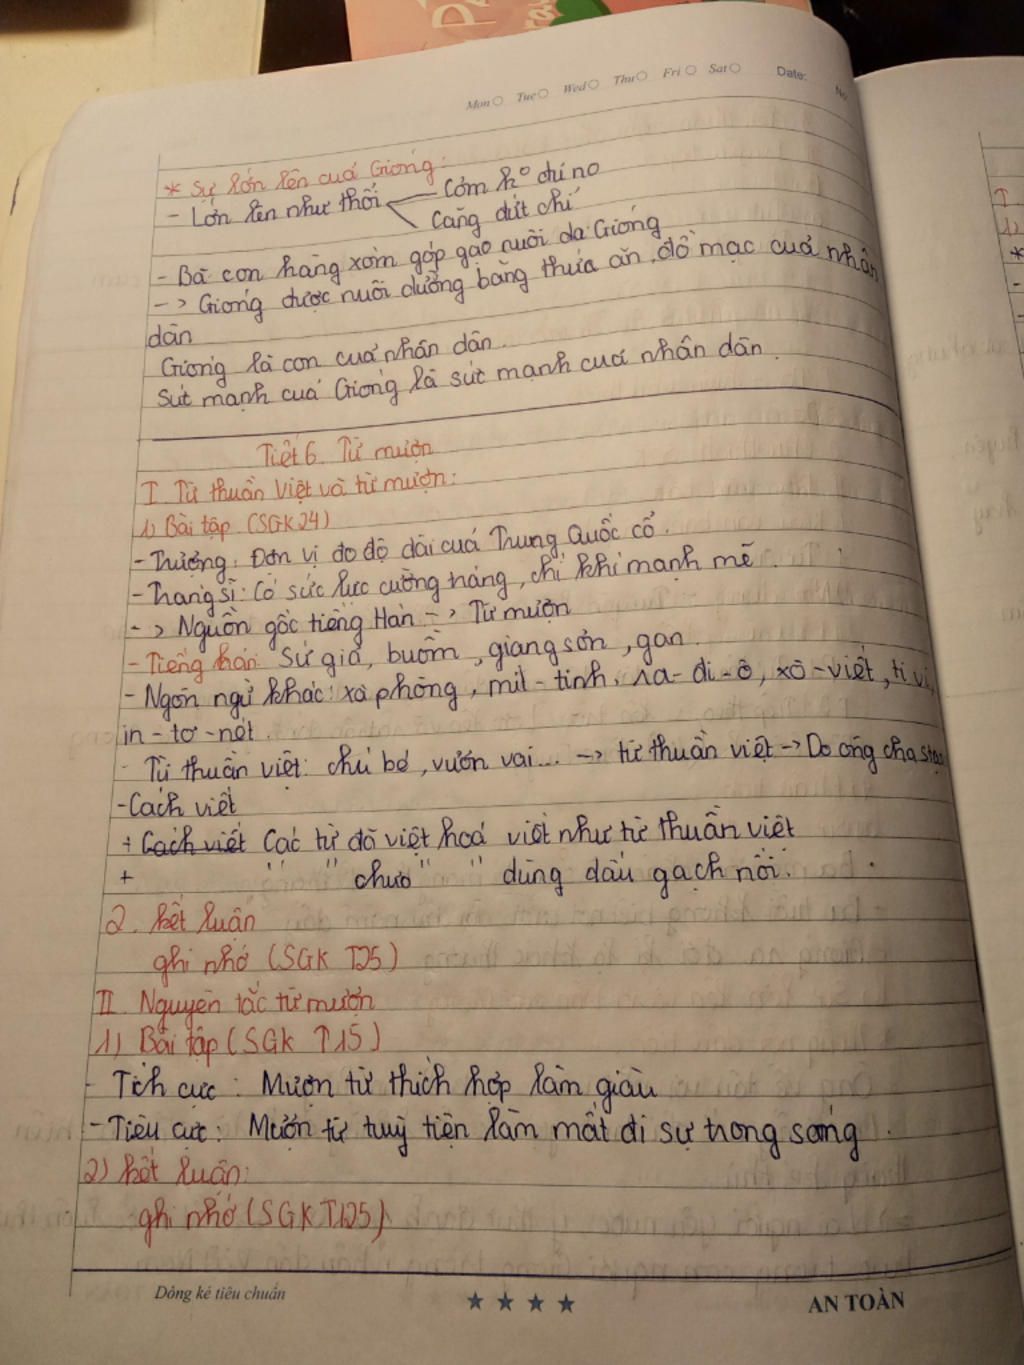 Mon Tue Wed Thu Fri Sat Date:
No
* Sự lớn lên cuả Gióng:
- Lớn lên như thổi Cơm ko chỉ no
Căng đứt chỉ
- Bà con hàng xóm góp gạo nuôi da Gióng
-> Gióng được nuôi dưỡng bằng thưá ăn, đồ mạc cuả nhân
dân
Gióng là con cuả nhân dân.
Sức mạnh cuả Gióng là sức mạnh cuả nhân dân.
Tiết 6. Từ mượn
I. Từ thuần Việt và từ mượn:
1) Bài tập (SGK 24)
- Trượng: Đơn vị đo độ dài cuả Trung Quốc cổ.
- Tráng sĩ: Có sức lực cường tráng, chí khí mạnh mẽ.
-> Nguồn gốc tiếng Hán => Từ mượn
- Tiếng hán: Sứ giả, buồm, giang sơn, gan.
- Ngôn ngữ khác: xà phòng, mit-tinh, ra-đi-ô, xô-viết, ti vi,
in-tơ-nét.
- Từ thuần việt: chú bé, vươn vai... -> từ thuần việt -> Do ông cha
- Cách viết
+ Cách viết Các từ đã việt hoá viết như từ thuần việt
+ " " chưa " " dùng dấu gạch nối.
2. kết luận
ghi nhớ (SGK T25)
II. Nguyên tắc từ mượn
1) Bài tập (SGK T15)
- Tích cực: Mượn từ thích hợp làm giàu
- Tiêu cực: Mượn từ tuỳ tiện làm mất đi sự trong sáng.
2) kết luận:
ghi nhớ (SGK T125)
Dòng kẻ tiêu chuẩn ★ ★ ★ ★ AN TOÀN